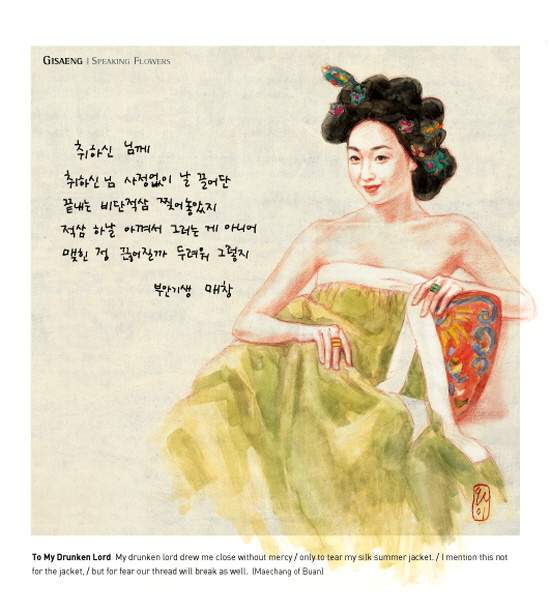 GISAENG | SPEAKING FLOWERS
취하신 님께
취하신 님 사정없이 날 끌어단
끝내는 비단적삼 찢어놓았지
적삼 하날 아껴서 그러는 게 아니어
맺힌 정 끊어질까 두려워 그렇지
부안기생 매창
To My Drunken Lord My drunken lord drew me close without mercy / only to tear my silk summer jacket. / I mention this not
for the jacket, / but for fear our thread will break as well. (Maechang of Buan)